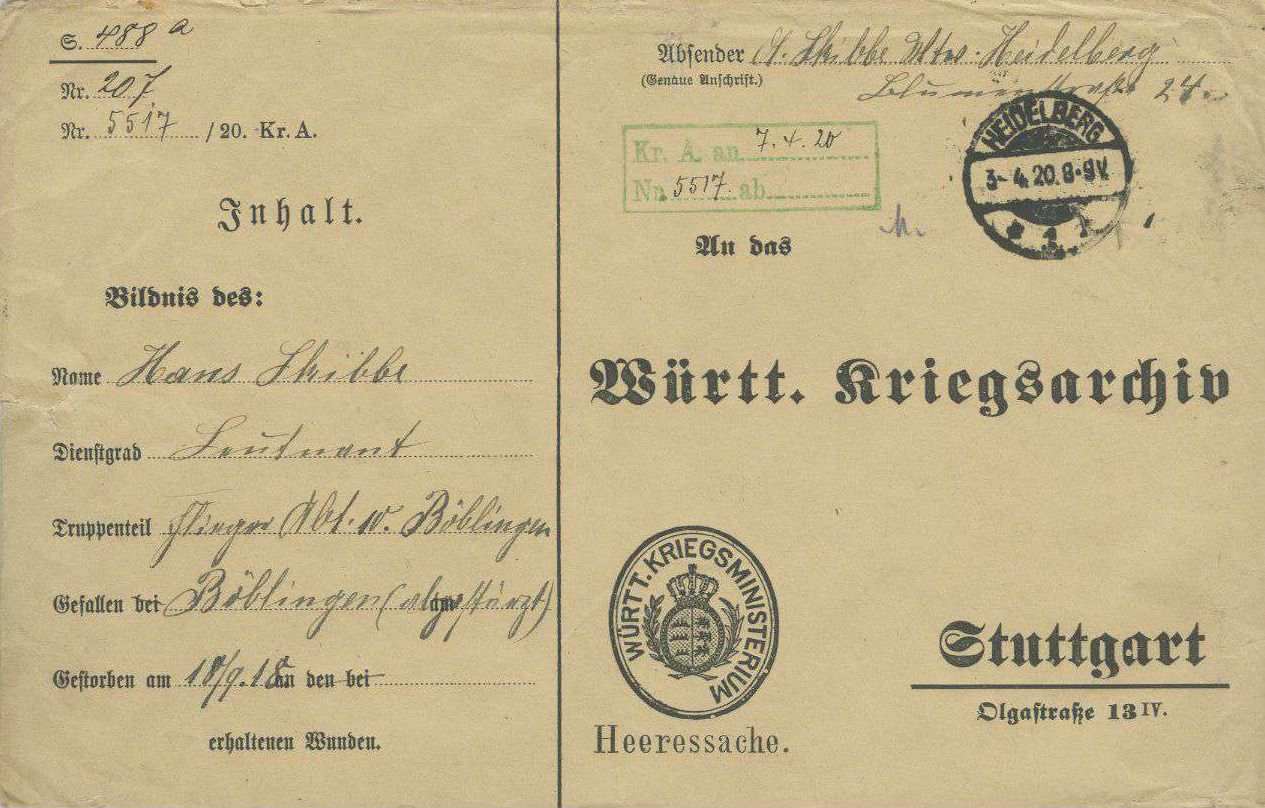 S. 488 a
Nr. 207
Nr. 5517 /20. Kr. A.
Inhalt.
Bildnis des:
Name Hans Skibbe
Dienstgrad Leutnant
Truppenteil Flieger Abt. w. Böblingen
Gefallen bei Böblingen (abgestürzt) am
Gestorben am 18/9.18 an den bei
erhaltenen Wunden.
Absender A. Skibbe Wtw. Heidelberg
(Genaue Anschrift.)
Blumenstraße 24.
HEIDELBERG
3-4.20.8-9V.
1
Kr. A. an 7.4.20
Nr. 5517 ab
An das
Württ. Kriegsarchiv
WÜRTT. KRIEGSMINISTERIUM
Stuttgart
Olgastraße 13 IV.
Heeressache.